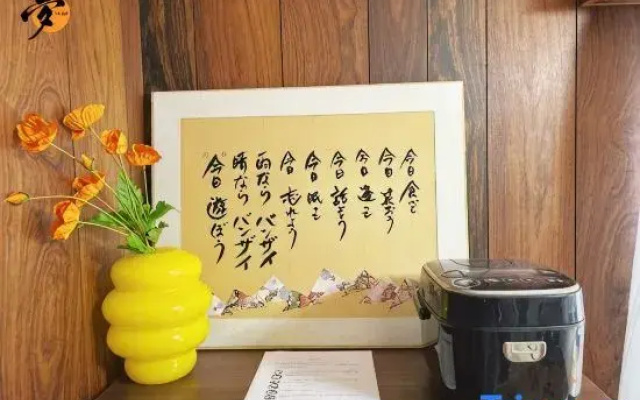 今日食べて
今日笑おう
今日逢
今日話そう
今日眠
今日忘れよう
雨なら バンザイ
晴なら バンザイ
今日遊ぼう